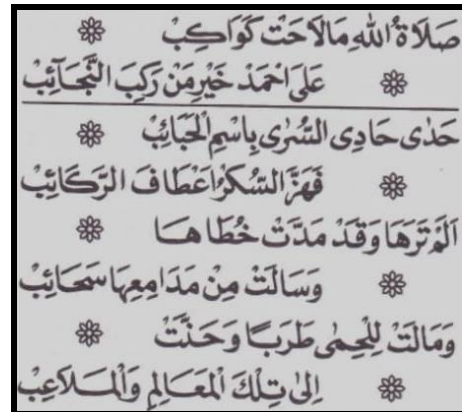 صَلَاةُ اللهِ مَالَاحَتْ كَوَاكِبْ
عَلَى اَحْمَدْ خَيْرِ مَنْ رَكِبَ النَّجَآئِبْ
حَدٰى حَادِى السُّرٰى بِاسْمِ الْحَبَائِبْ
فَهَزَّ السُّكْرُ اَعْطَافَ الرَّكَائِبْ
اَلَمْ تَرَهَا وَقَدْ مَدَّتْ خُطَاهَا
وَسَالَتْ مِنْ مَدَامِعِهَا سَحَائِبْ
وَمَالَتْ لِلْحِمٰى طَرَبًا وَحَنَّتْ
اِلٰى تِلْكَ الْمَعَالِمِ وَالْمَلَاعِبْ